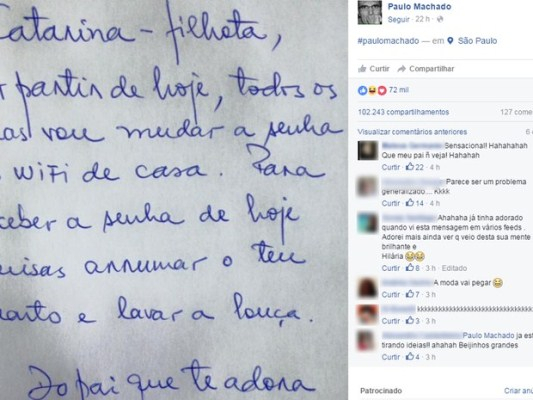 Catarina - filhota,
partir de hoje, todos os
vou mudar a senha
WIFI de casa. Para
a senha de hoje
arrumar o teu
e lavar a louça.
Do pai que te adora
Paulo Machado
Seguir · 22 h ·
#paulomachado — em São Paulo
Curtir Compartilhar
72 mil
102.243 compartilhamentos 127 come
Visualizar comentários anteriores 6
Sensacional!! Hahahahah
Que meu pai ñ veja! Hahahah
Curtir · 22 · 4 h
Parece ser um problema
generalizado... Kkkk
Curtir · 14 · 4 h
Ahahaha já tinha adorado
quando vi esta mensagem em vários feeds .
Adorei mais ainda ver q veio desta sua mente
brilhante e
Hilária
Curtir · 8 · 3 h · Editado
A moda vai pegar
Curtir · 7 · 3 h
Curtir · 3 · 3 h
Paulo Machado ja es
tirando ideias!! ahahah Beijinhos grandes
Curtir · 4 · 3 h
Patrocinado Criar anú